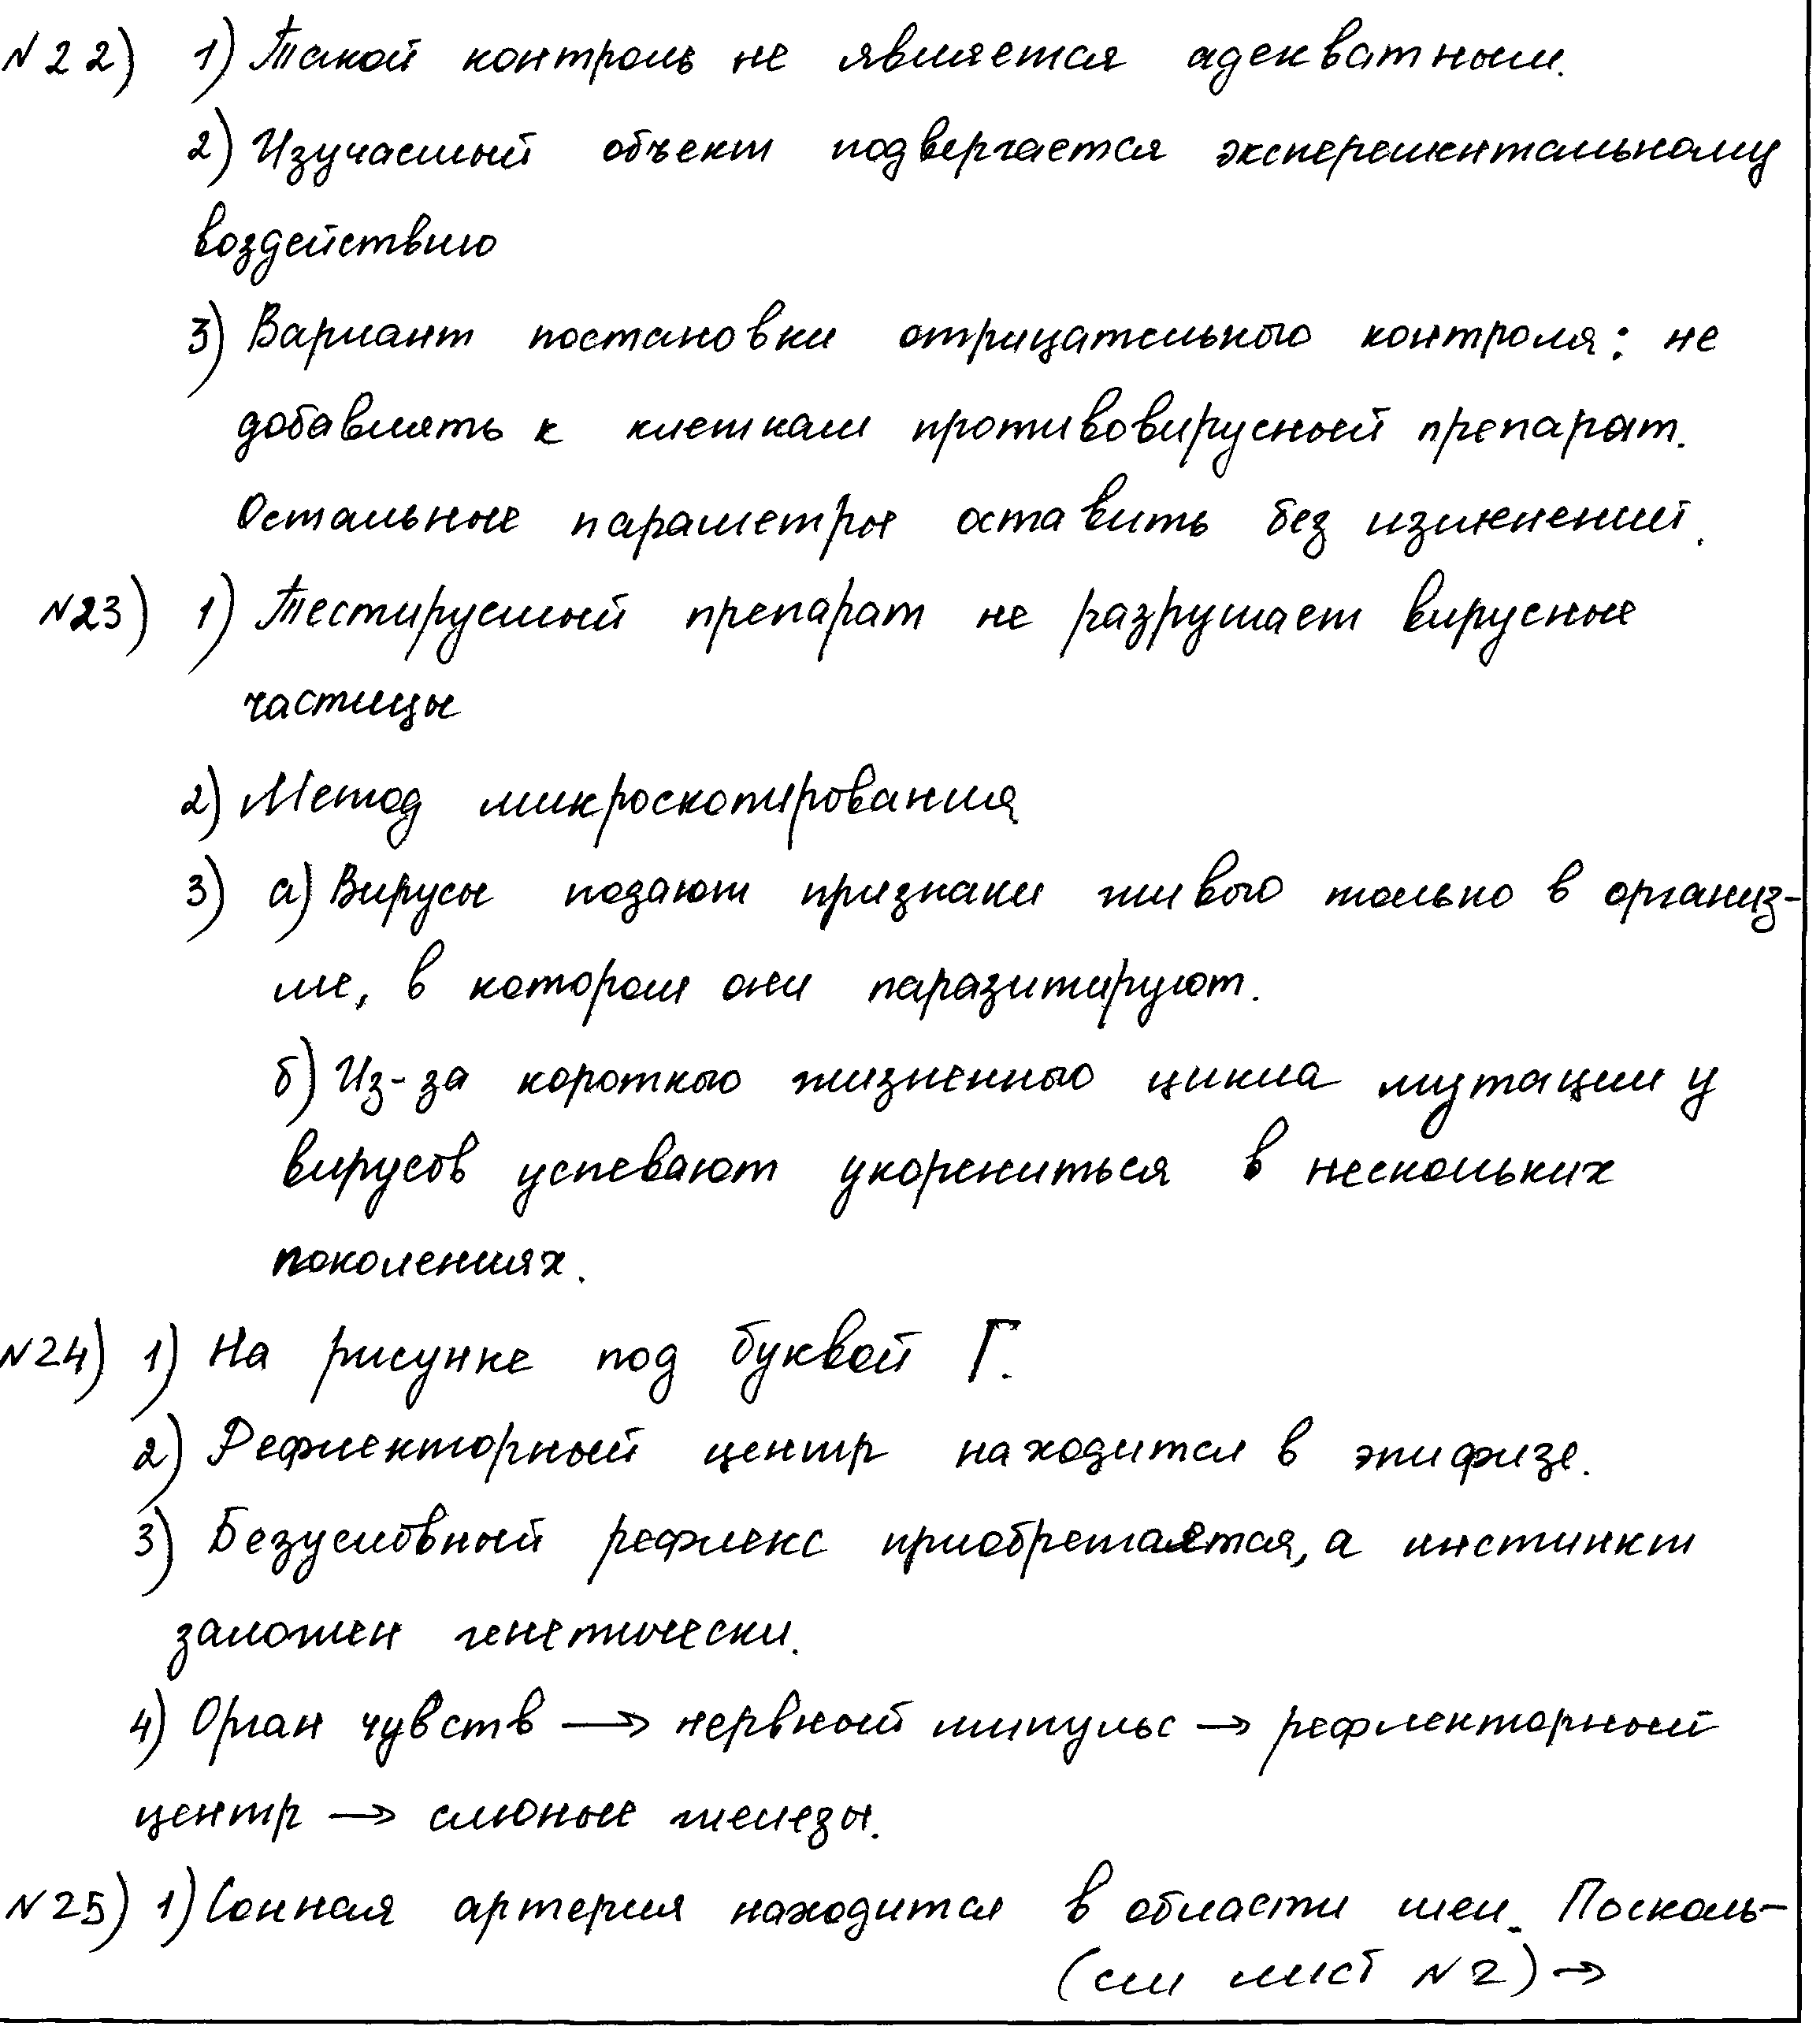 №22) 1) Такой контроль не является адекватным.
2) Изучаемый объект подвергается эксперементальному
воздействию
3) Вариант постановки отрицательного контроля: не
добавлять к клеткам противовирусный препарат.
Остальные параметры оставить без изменений.
№23) 1) Тестируемый препарат не разрушает вирусные
частицы
2) Метод микроскопирования
3) а) Вирусы подают признаки живого только в организ-
ме, в котором они паразитируют.
б) Из-за короткого жизненного цикла мутации у
вирусов успевают укорениться в нескольких
поколениях.
№24) 1) На рисунке под буквой Г.
2) Рефлекторный центр находится в эпифизе.
3) Безусловный рефлекс приобретается, а инстинкт
заложен генетически.
4) Орган чувств → нервный импульс → рефлекторный
центр → слюные железы.
№25) 1) Сонная артерия находится в области шеи. Посколь-
(см лист №2) →